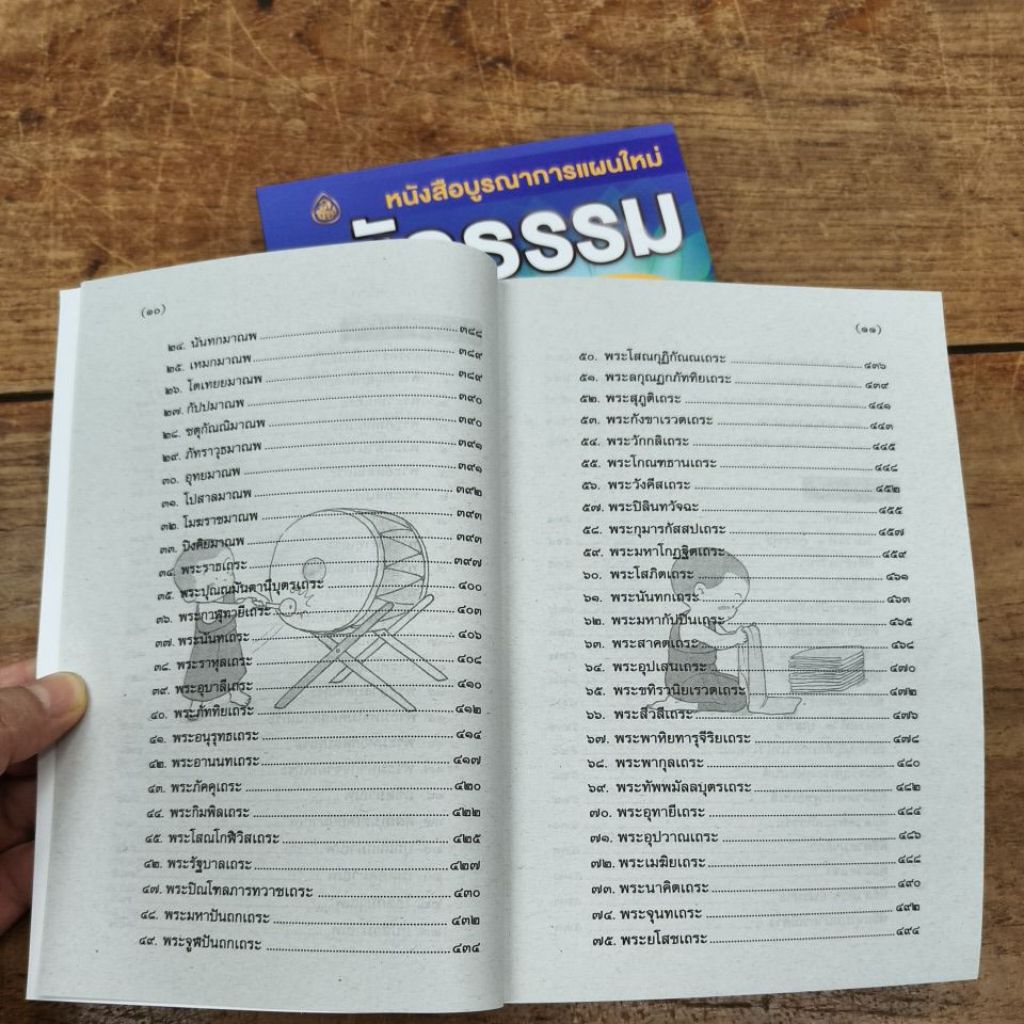 หนังสือบูรณาการแผนใหม่
ธรรม
(๑๐)
๒๔. นันทกมาณพ ๓๘๘
๒๕. เหมกมาณพ ๓๘๙
๒๖. โตเทยยมาณพ ๓๘๙
๒๗. กัปปมาณพ ๓๙๐
๒๘. ชตุกัณณิมาณพ ๓๙๐
๒๙. ภัทราวุธมาณพ ๓๙๑
๓๐. อุทยมาณพ ๓๙๑
๓๑. โปสาลมาณพ ๓๙๒
๓๒. โมฆราชมาณพ ๓๙๓
๓๓. ปิงคิยมาณพ ๓๙๓
๓๔. พระราธเถระ ๓๙๗
๓๕. พระปุณณมันตานีบุตรเถระ ๔๐๐
๓๖. พระกาฬุทายีเถระ ๔๐๓
๓๗. พระนันทเถระ ๔๐๖
๓๘. พระราหุลเถระ ๔๐๘
๓๙. พระอุบาลีเถระ ๔๑๐
๔๐. พระภัททิยเถระ ๔๑๒
๔๑. พระอนุรุทธเถระ ๔๑๔
๔๒. พระอานนทเถระ ๔๑๗
๔๓. พระภัคคุเถระ ๔๒๐
๔๔. พระกิมพิลเถระ ๔๒๒
๔๕. พระโสณโกฬิวิสเถระ ๔๒๕
๔๒. พระรัฐบาลเถระ ๔๒๗
๔๗. พระปิณโฑลภารทวาชเถระ ๔๓๐
๔๘. พระมหาปันถกเถระ ๔๓๒
๔๙. พระจูฬปันถกเถระ ๔๓๔
(๑๑)
๕๐. พระโสณกุฏิกัณณเถระ ๔๓๖
๕๑. พระลกุณฏกภัททิยเถระ ๔๓๙
๕๒. พระสุภูติเถระ ๔๔๑
๕๓. พระกังขาเรวตเถระ ๔๔๓
๕๔. พระวักกลิเถระ ๔๔๕
๕๕. พระโกณฑธานเถระ ๔๔๘
๕๖. พระวังคีสเถระ ๔๕๒
๕๗. พระปิลินทวัจฉะ ๔๕๕
๕๘. พระกุมารกัสสปเถระ ๔๕๗
๕๙. พระมหาโกฏฐิตเถระ ๔๕๙
๖๐. พระโสภิตเถระ ๔๖๑
๖๑. พระนันทกเถระ ๔๖๓
๖๒. พระมหากัปปินเถระ ๔๖๕
๖๓. พระสาคตเถระ ๔๖๘
๖๔. พระอุปเสนเถระ ๔๗๐
๖๕. พระขทิรวนิยเรวตเถระ ๔๗๒
๖๖. พระสีวลีเถระ ๔๗๖
๖๗. พระพาหิยทารุจีริยเถระ ๔๗๘
๖๘. พระพากุลเถระ ๔๘๐
๖๙. พระทัพพมัลลบุตรเถระ ๔๘๒
๗๐. พระอุทายีเถระ ๔๘๔
๗๑. พระอุปวาณเถระ ๔๘๖
๗๒. พระเมฆิยเถระ ๔๘๘
๗๓. พระนาคิตเถระ ๔๙๐
๗๔. พระจุนทเถระ ๔๙๒
๗๕. พระยโสชเถระ ๔๙๔